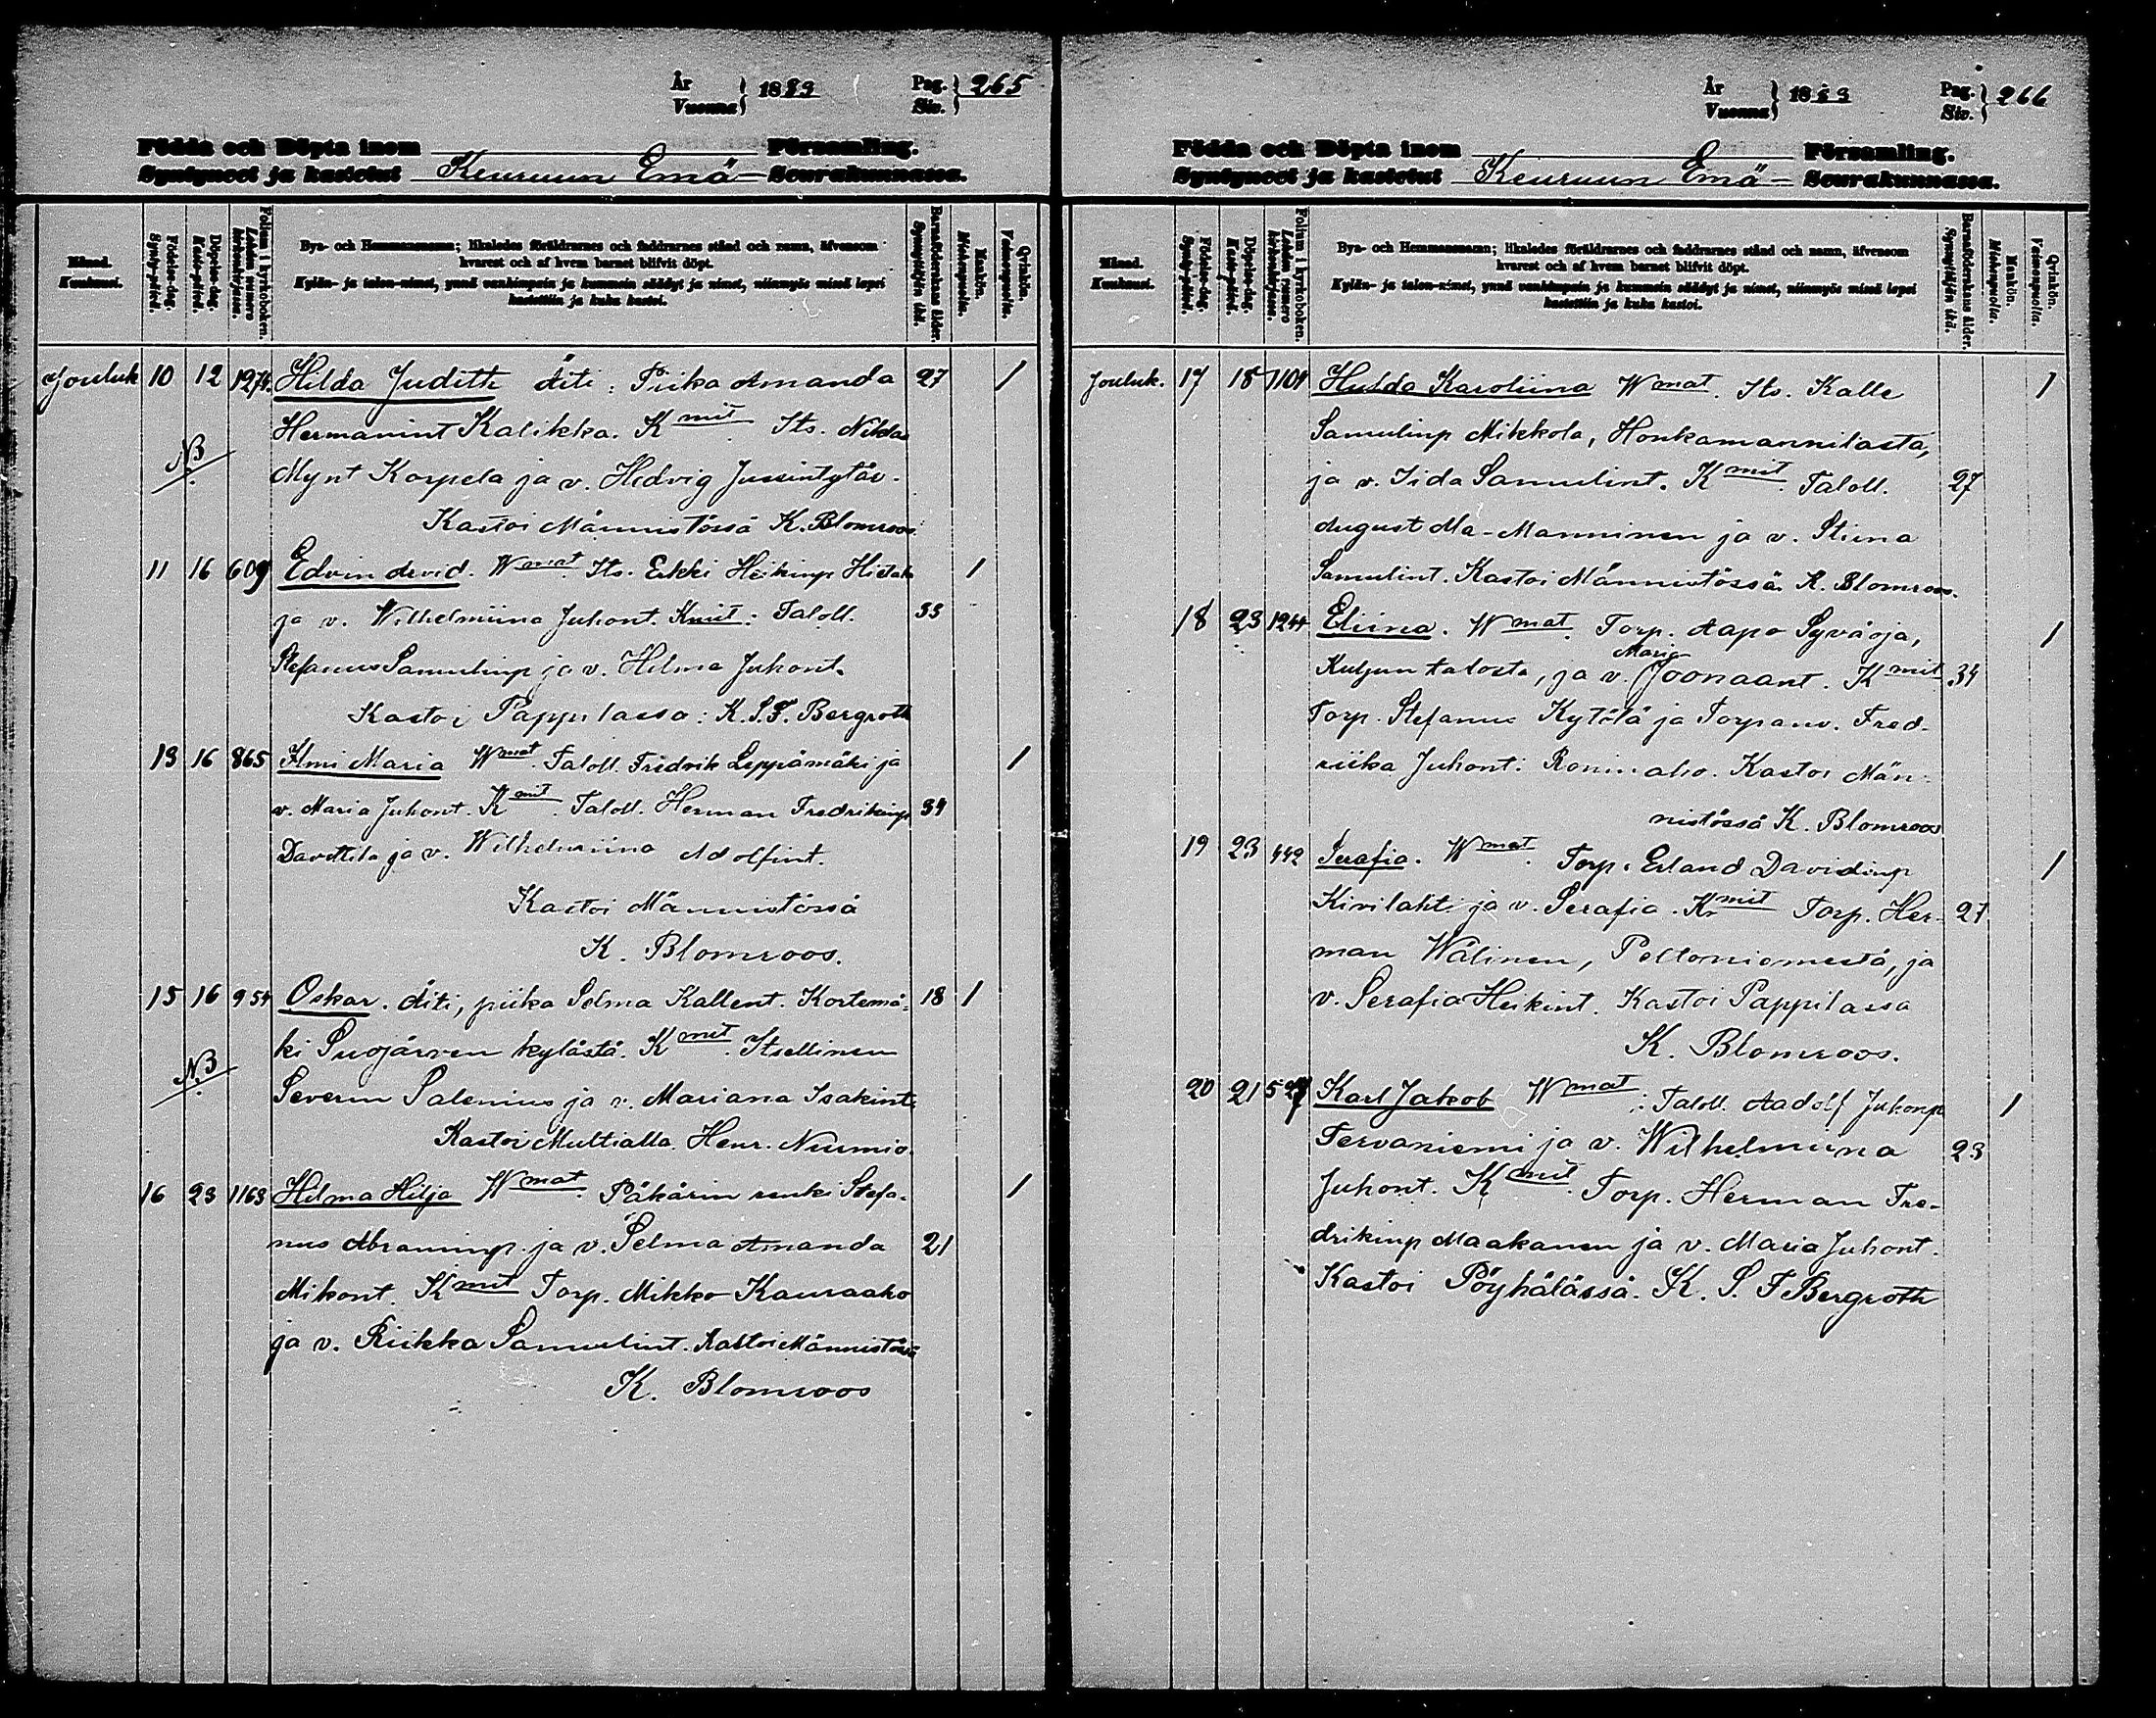 År
Vuonna } 1883 Pag.
Siv. } 265
Födda och Döpta inom Församling.
Syntyneet ja kastetut Keuruun Emä- Seurakunnassa.
Månad.
Kuukausi.
Födelse-dag.
Synty-päivä.
Döpelse-dag.
Kaste-päivä.
Folium i kyrkoboken.
Lehden numero kirkonkirjassa.
Bya- och Hemmansnamn; likaledes föräldrarnes och faddrarnes stånd och namn, äfvensom
hvarest och af hvem barnet blifvit döpt.
Kylän- ja talon-nimet, ynnä vanhimpain ja kummein säädyt ja nimet, niinmyös missä lapsi
kastettiin ja kuka kastoi.
Barnaföderskans ålder.
Synnyttäjän ikä.
Mankön.
Miehenpuolia.
Qvinkön.
Vaimonpuolia.
Jouluk 10 12 1274. Hilda Judith Äiti: Piika Amanda 27 1
Hermanint Kalikka. K mit Its. Niklas
NB
Mynt Korpela ja v. Hedvig Jussintytär.
Kastoi Männistössä K. Blomroos
11 16 609 Edvin Arvid. W mat. Its. Erkki Heikinp Hietala 1
ja v. Wilhelmiina Juhont. Kmit: Taloll. 33
Stefanus Samulinp ja v. Hilma Juhont.
Kastoi Pappilassa: K. S. F. Bergroth
13 16 865 Ilmi Maria W mat. Taloll. Fredrik Leppämäki ja 1
v. Maria Juhont. K mit. Taloll. Herman Fredrikinp 34
Davittila ja v. Wilhelmiina Adolfint.
Kastoi Männistössä
K. Blomroos.
15 16 954 Oskar. Äiti, piika Selma Kallent. Kortemä- 18 1
ki Suojärven kylästä. K mit. Itsellinen
NB
Severin Salenius ja v. Mariana Isakint.
Kastoi Multialla. Henr. Nurmio.
16 23 1163 Hilma Hilja W mat. Päkärin renki Stefa- 1
nus Abraminp. ja v. Selma Amanda 21
Mikont. K mit Torp. Mikko Kauraaho
ja v. Riikka Samuelint. Kastoi Männistössä
K. Blomroos
År
Vuonna } 1883 Pag.
Siv. } 266
Födda och Döpta inom Församling.
Syntyneet ja kastetut Keuruun Emä- Seurakunnassa.
Månad.
Kuukausi.
Födelse-dag.
Synty-päivä.
Döpelse-dag.
Kaste-päivä.
Folium i kyrkoboken.
Lehden numero kirkonkirjassa.
Bya- och Hemmansnamn; likaledes föräldrarnes och faddrarnes stånd och namn, äfvensom
hvarest och af hvem barnet blifvit döpt.
Kylän- ja talon-nimet, ynnä vanhimpain ja kummein säädyt ja nimet, niinmyös missä lapsi
kastettiin ja kuka kastoi.
Barnaföderskans ålder.
Synnyttäjän ikä.
Mankön.
Miehenpuolia.
Qvinkön.
Vaimonpuolia.
Jouluk. 17 18 1101 Hulda Karoliina W mat. Its. Kalle 1
Samulinp Mikkola, Honkamannilasta,
ja v. Iida Samulint. K mit. Taloll. 27
August Ala-Manninen ja v. Stiina
Samulint. Kastoi Männistössä K. Blomroos.
18 23 1244 Eliina. W mat. Torp. Aapo Syväoja, 1
Maria
Kuljun talosta, ja v. Joonaant. K mit 34
Torp. Stefanus Kytölä ja Torpanv. Fred-
riika Juhont: Roninaho. Kastoi Män-
nistössä K. Blomroos
19 23 442 Serafia. W mat. Torp. Erland Davidinp 1
Kivilahti ja v. Serafia. K mit Torp. Her- 27
man Wälinen, Peltoniemestä, ja
v. Serafia Heikint. Kastoi Pappilassa
K. Blomroos.
20 21 527 Karl Jakob W mat.: Taloll. Aadolf Juhonp 1
Tervaniemi ja v. Wilhelmiina 23
Juhont. K mit. Torp. Herman Fre-
drikinp Maakanen ja v. Maria Juhont.
Kastoi Pöyhälässä. K. S. F Bergroth